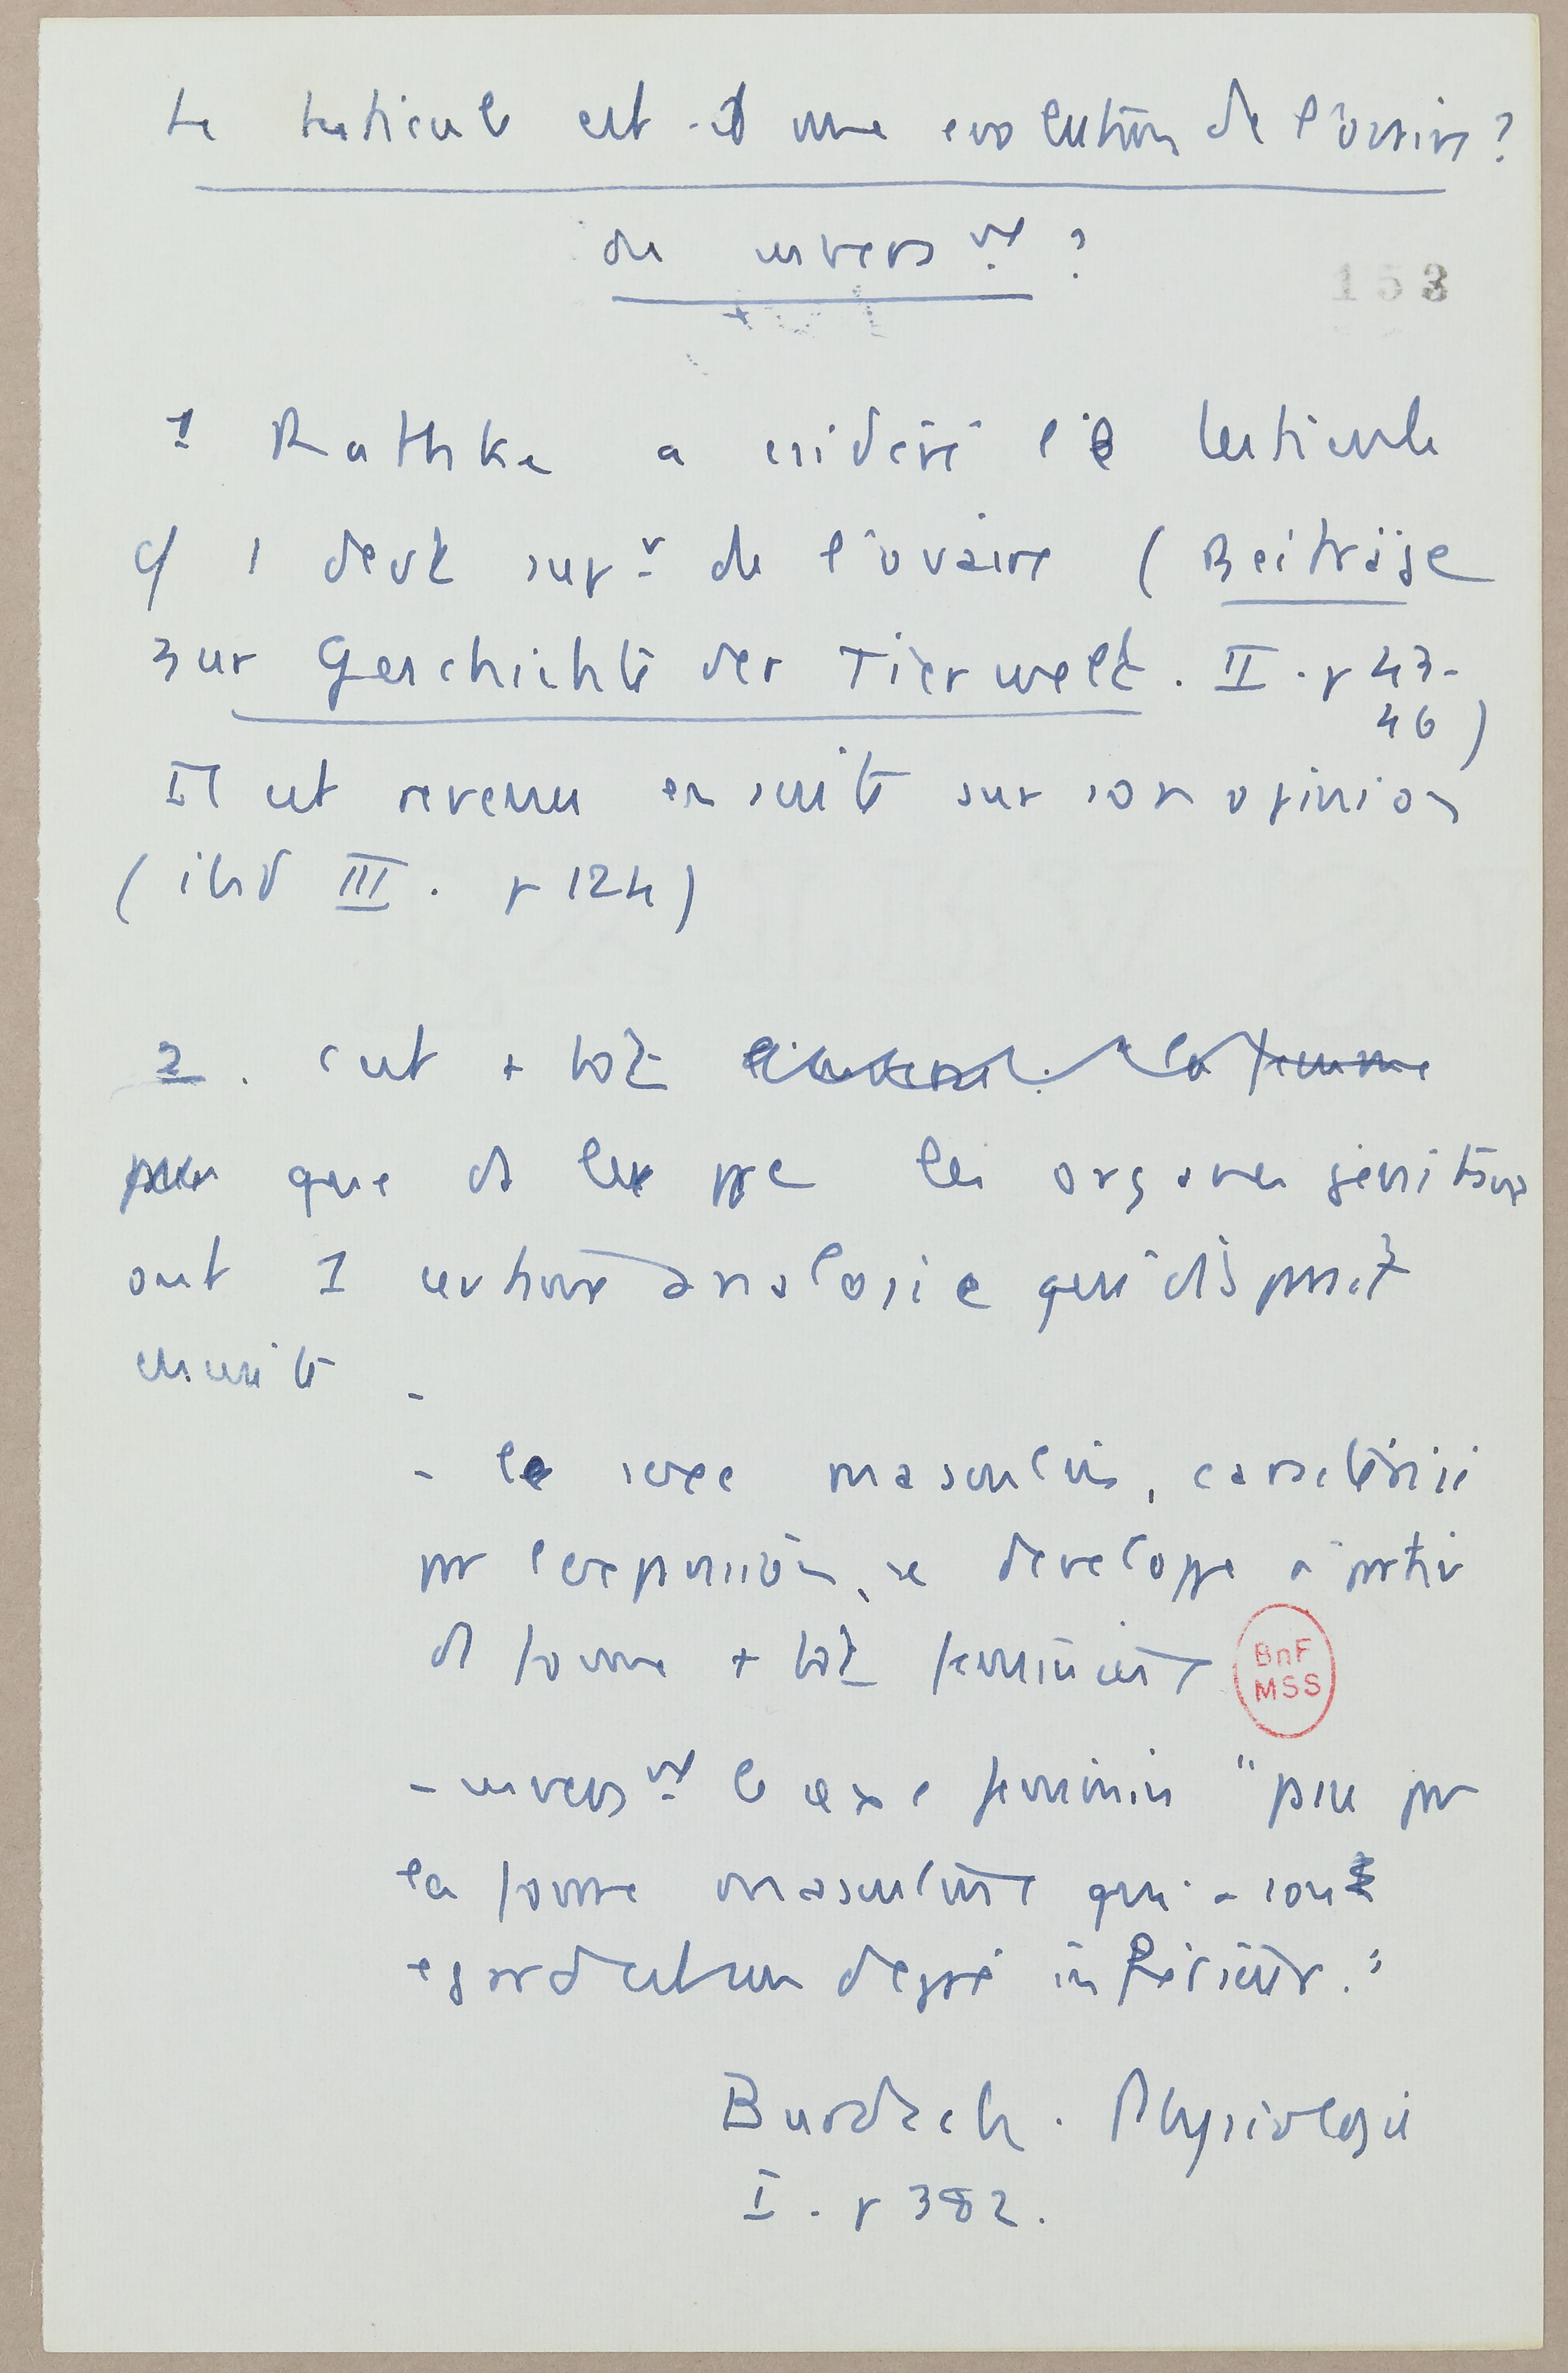 Le testicule est-il une evolution de l'ovaire?
ou invers nt ?
153
1 Rathke a csidéré le testicule
c/ 1 devt supr de l'ovaire (Beiträge
zur Geschichte der Tierwelt. II. p 43-
46)
Il est revenu ensuite sur son opinion
(ibid III. p 124)
2. c'est + tôt la femme
que ds les organes génitaux
ont 1 certaine analogie qui disparaît
ensuite.
- le sexe masculin, caractérisé
pr l'expansion, se developpe à partir
de forme + tôt féminine
BnF
MSS
- inversnt le sexe feminin "passe par
la forme masculine qui à cet
egard est un degré inférieur."
Burdach. Physiologie
I. p 382.